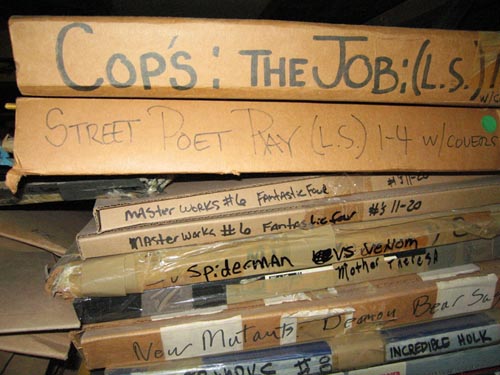 COP'S: THE JOB: (L.S.)
STREET POET RAY (L.S.) 1-4 W/COVERS
MASTER WORKS #6 FANTASTIC FOUR #'S 11-20
MASTER WORKS #6 FANTASTIC FOUR #'S 11-20
SPIDERMAN VS VENOM
Mother Theresa
New Mutants - Deamon Bear Sa
INCREDIBLE HOLK